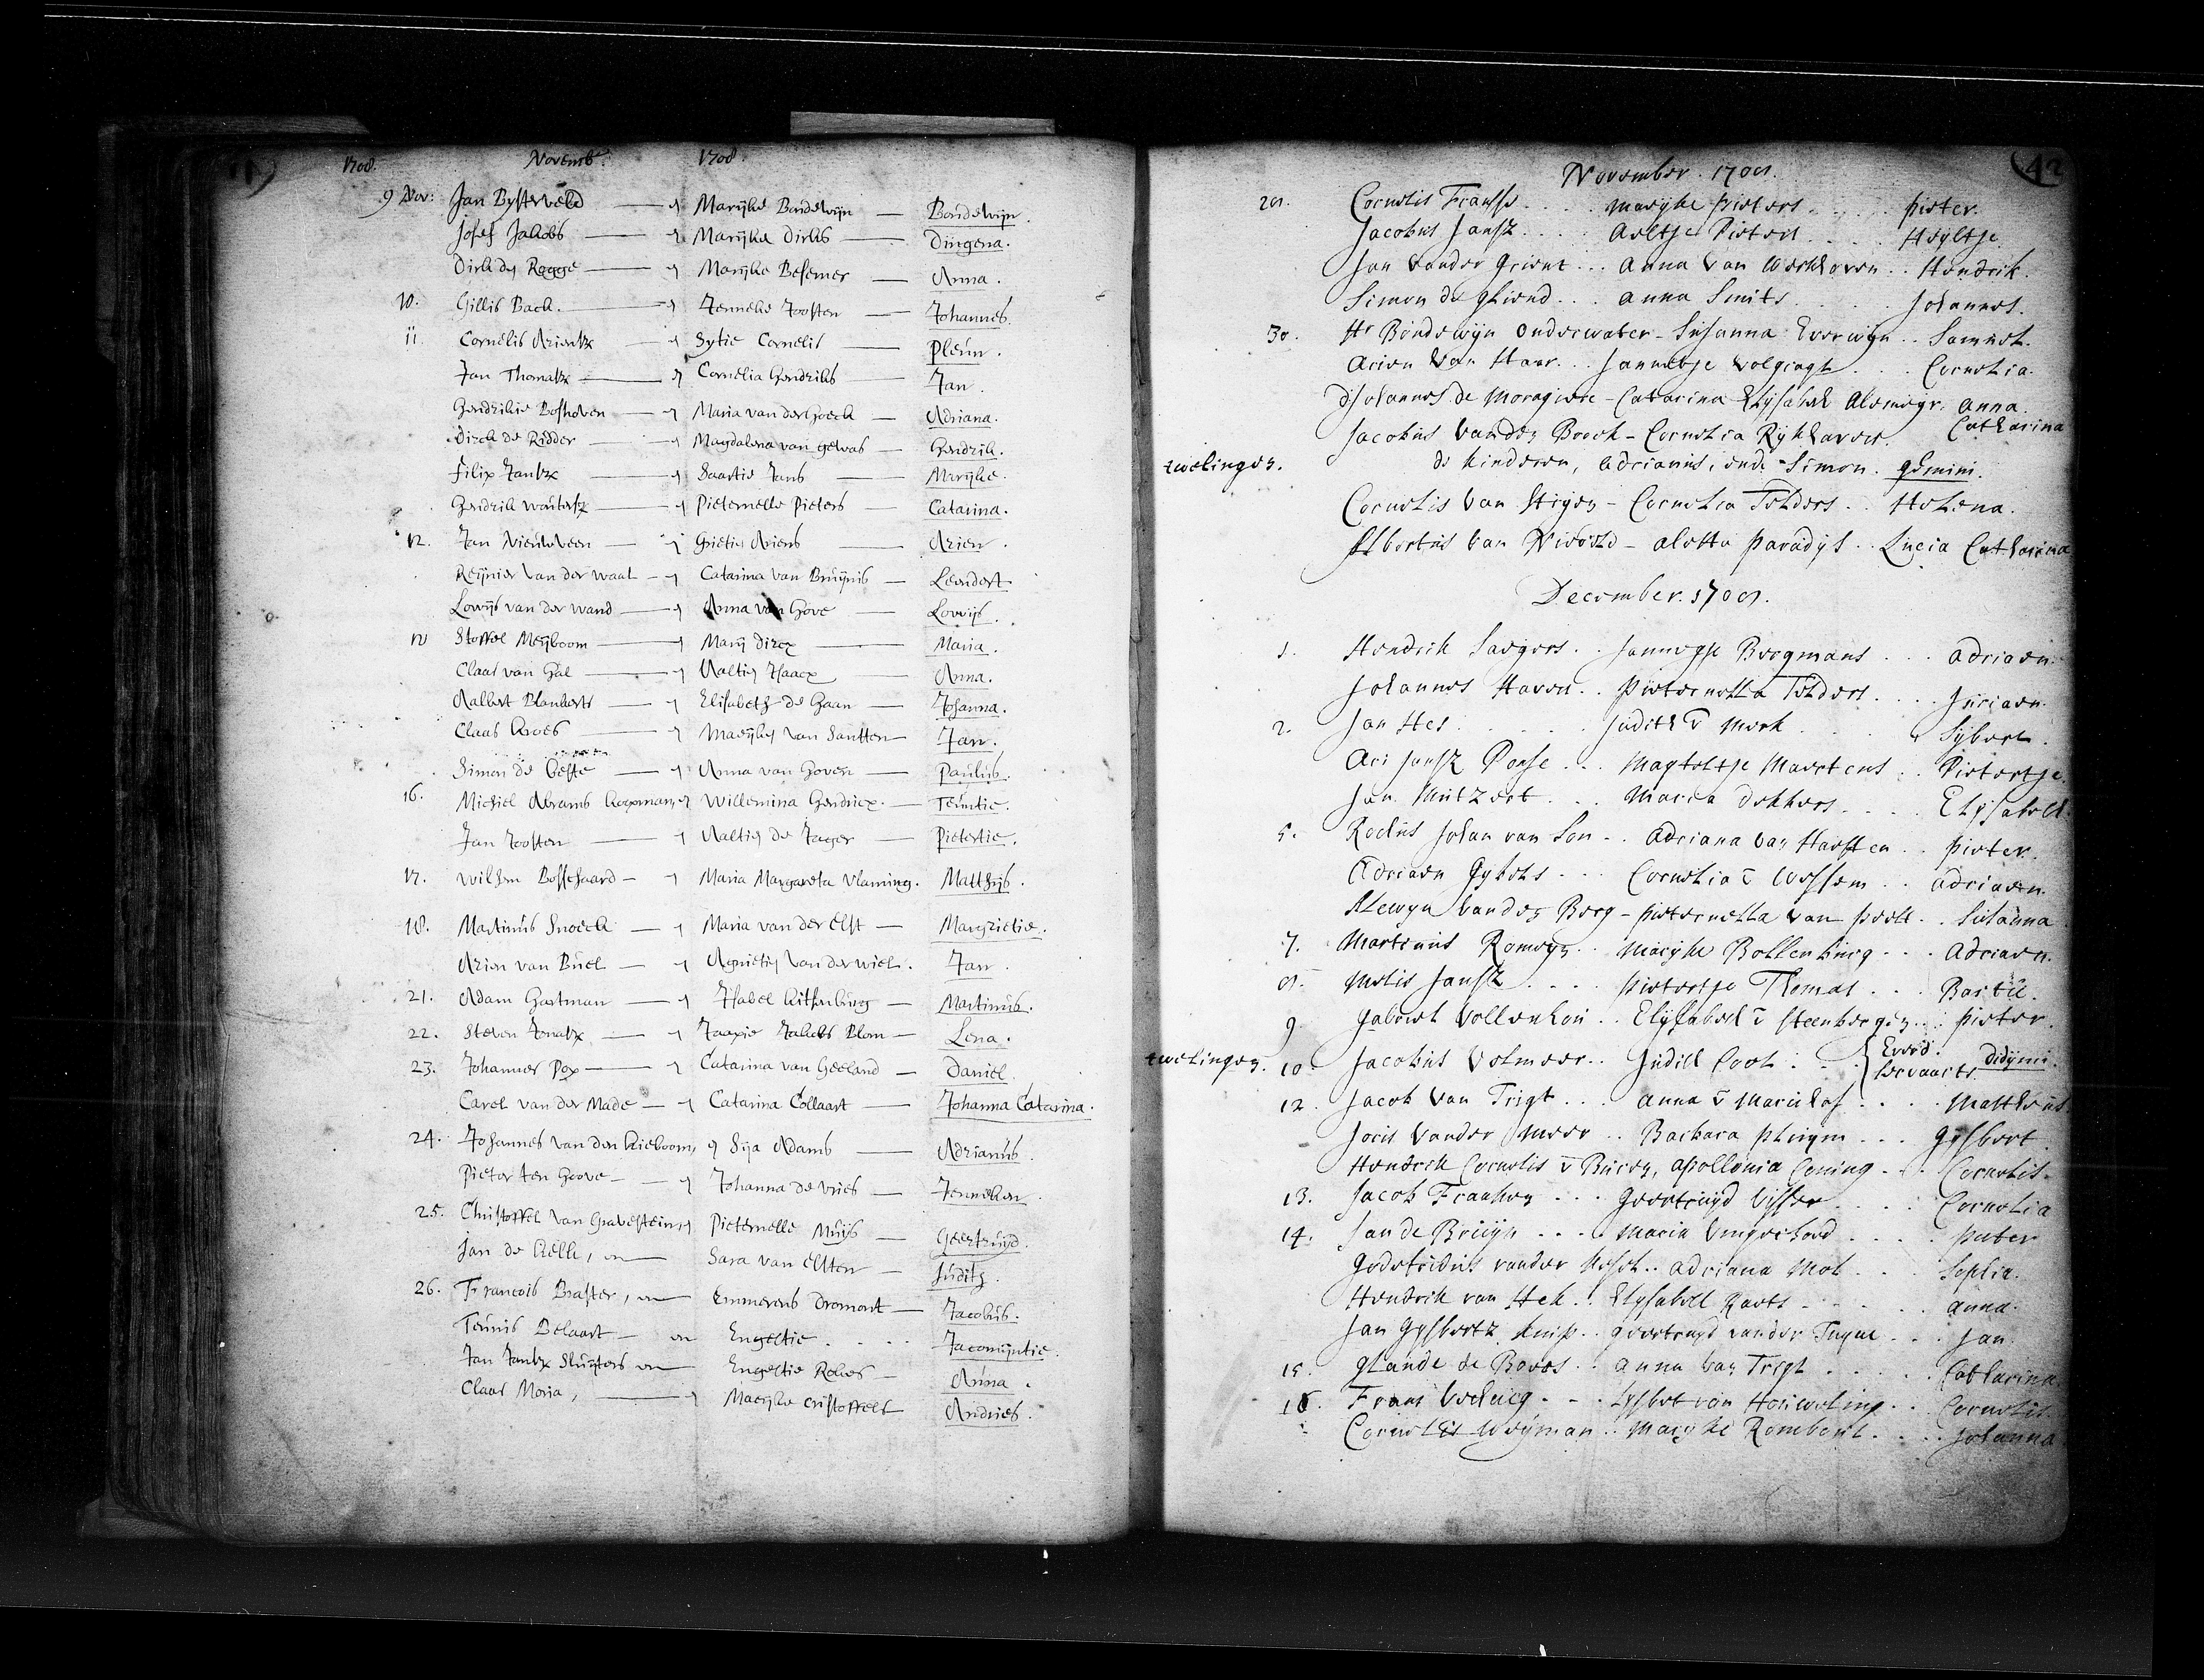 1708. Novemb. 1708.
9 Nov: Jan Bysterveld — en Marijke Bondewijn — Bondewijn.
Josef Jakobs — en Marijke Dirks — Dingena.
Dirk de Regge — en Marijke Besemer — Anna.
10. Gillis Back. — en Jenneke Joosten — Johannes.
11. Cornelis Arientz — en Sytie Cornelis — Pleun.
Jan Thomasz — en Cornelia Hendriks — Jan.
Hendrikie Boshoven — en Maria van der Hoeck — Adriana.
Dirck de Ridder — en Magdalena van Helwas — Hendrik.
Filix Jansz — en Saartie Jans — Marijke.
Hendrik Woutersz — en Pieternelle Pieters — Catarina.
12. Jan Nieuwveen — en Grietie Ariens — Arien.
Reijnier van der Waal — en Catarina van Bruijnis — Leendert
Lowijs van der Wand — en Anna van Hove — Lowijs.
12 Stoffel Meijboom — en Marij Dircx — Maria.
Claas van Gal — en Aaltie Isaacx — Anna.
Aalbert Blanberts — en Elisabeth de Haan — Johanna.
Claas Kroes — en Marijke van Santten — Jan.
Simon de Geste — en Anna van Hoven — Paulus.
16. Michiel Abrams Koopman, en Willemina Hendricx. — Teuntie.
Jan Joosten — en Aaltie de Jager — Pietertie.
17. Willem Bosschaard — en Maria Margareta Vlaming. Matthijs.
18. Martinus Snoeck — en Maria van der Elst — Margrietie.
Arien van Buel — en Agnietie van der Wiel. Jan.
21. Adam Hartman — en Isabel Kitsenburg — Martinus.
22. Steven Jonasz — en Jaapie Jakobs Blom — Lena.
23. Johannes Pox — en Catarina van Heeland — Daniel.
Carel van der Made — en Catarina Collaart — Johanna Catarina.
24. Johannes van den Kieboom, en Sija Adams — Adrianus.
Pieter ten Hoove — en Johanna de Vries — Jenneken.
25. Christoffel van Gravestein, en Pieternelle Muijs — Geertruijd.
Jan de Kelk, en — Sara van Elsten — Judith.
26. Francois Braster, en — Emmerens Dromont — Jacobus.
Teunis Belaart — en Engeltie . . . . Jacomijntie.
Jan Jansz Sluijters en — Engeltie Robes — Anna.
Claas Moria, — en Marijke Cristoffels Andries.
42
November. 1708.
28. Cornelis Franse . . . . Marijke Pieters . . . . Pieter.
Jacobus Jansz . . . . Aeltje Pieters . . . . Heyltje.
Jan vander Grient . . . Anna van Werkhoven . . Hendrik.
Simon de Gliend . . . Anna Smits . . . Johannes.
30. Hr Boudewijn Onderwater - Susanna Everwijn . . Samuel.
Arien van Haar . . . Jannetje Volgragt . . . Cornelia.
D Johannes de Moragiere - Catarina Elysabeth Alemeyr. Anna Catharina
Jacobus vander Boock - Cornelia Rijkhaver.
twelingen. de kinderen, Adrianus, ende Simon. gemini.
Cornelis van Strijen - Cornelia Tolders . . Helena.
Albertus van Nivoort - Aletta Paradijs . . Lucia Catharina
December. 1708.
1. Hendrik Saegers . . Jannetje Bergmans . . . Adriaen.
Johannes Haven . . Pieternella Tolders . . . Juriaen.
2. Jan Hes . . . . Judith v Merk . . . . Sybert.
Ari Jansz Ponse . . . Magteltje Maertens . . Pietertje.
Jan Mutzert . . . Maria Dekkers . . . . Elysabeth.
5. Rochus Johan van Son . . Adriana van Haeften . . Pieter.
Adriaen Gybels . . . Cornelia v Wessem . . Adriaen.
Alewyn vander Berg - Pieternella van Peelt . . Susanna
7. Martinus Romeyn . . Marijke Bollenburg . . . Adriaen.
8. Melis Jansz . . . . Pietertje Thomas . . . Bartel.
9. Gabriel Vollenhou . . Elysabeth v Steenbergen . . . Pieter.
twelingen. 10. Jacobus Volmeer . . Judith Cool . . . { Evord. Servaerts. didymi.
12. Jacob van Trigt . . . Anna v Marienhof . . . . Mattheus
Joris vander Meer . . Barbara Pluym . . . Gysbert.
Hendrik Cornelis v Buren, Apollonia Coning . . . Cornelis.
13. Jacob Franken . . . Geertruyd Visser . . . . Cornelia
14. Jan de Bruyn . . . Maria Vingerhoed . . . . Pieter
Godefridus vander Hesel . . Adriana Mol . . . Sophia.
Hendrik van Hek . . Elysabeth Raets . . . . . Anna.
Jan Gysbertz Knip . . Geertruyd vander Tuyne . . . Jan.
15. Glaude de Boves . . Anna van Trigt . . . . . Catharina
16. Frans Verburg . . . Lysbet van Houweling . . Cornelis.
Cornelis Weyman . . Maryke Rombout . . . . Johanna